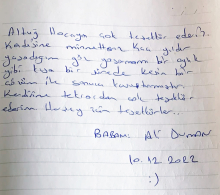 Altuğ Hocaya çok teşekkür ederiz.
Kendisine minnettarız. Kaç yıldır
yaşadığım göz yaşarma bir aylık
gibi kısa bir sürede kesin bir
çözüm ile sonuca kavuşturmuştur.
Kendisine tekrardan çok teşekkür
ederim. Herşey için teşekkürler..
BABAM: Ali DUMAN
10.12.2022
:)